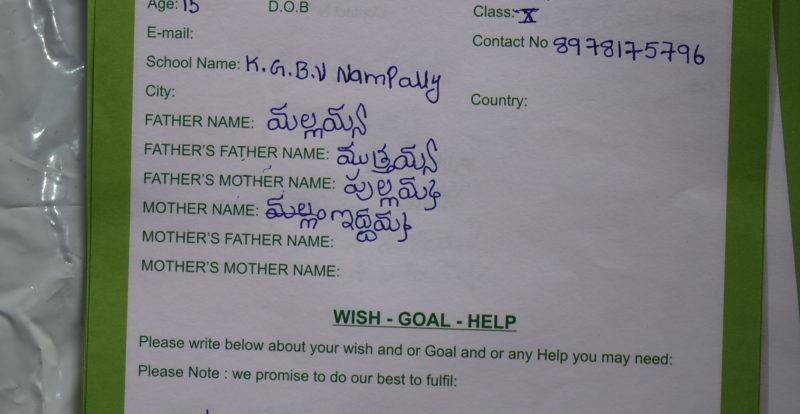 Age: 15 D.O.B Class: X
E-mail: Contact No 8978175796
School Name: K.G.B.V Nampally
City: Country:
FATHER NAME: మల్లయ్య
FATHER'S FATHER NAME: ముత్తయ్య
FATHER'S MOTHER NAME: పుల్లమ్మ
MOTHER NAME: మల్లం ఇద్దమ్మ
MOTHER'S FATHER NAME:
MOTHER'S MOTHER NAME:
WISH - GOAL - HELP
Please write below about your wish and or Goal and or any Help you may need:
Please Note : we promise to do our best to fulfil: